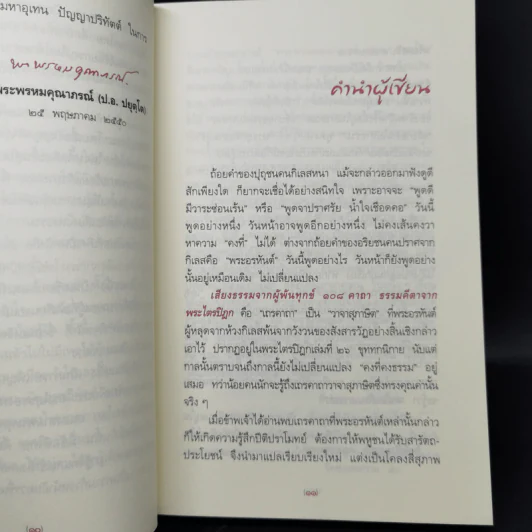 มหาอุเทน ปัญญาปริทัตต์ ในการ
พระพรหมคุณาภรณ์
พระพรหมคุณาภรณ์ (ป.อ. ปยุตฺโต)
๒๕ พฤษภาคม ๒๕๕๐
คำนำผู้เขียน
ถ้อยคำของปุถุชนคนกิเลสหนา แม้จะกล่าวออกมาฟังดูดี
สักเพียงใด ก็ยากจะเชื่อได้อย่างสนิทใจ เพราะอาจจะ “พูดดี
มีวาระซ่อนเร้น” หรือ “พูดจาปราศรัย น้ำใจเชือดคอ” วันนี้
พูดอย่างหนึ่ง วันหน้าอาจพูดอีกอย่างหนึ่ง ไม่คงเส้นคงวา
หาความ “คงที่” ไม่ได้ ต่างจากถ้อยคำของอริยชนคนปราศจาก
กิเลสคือ “พระอรหันต์” วันนี้พูดอย่างไร วันหน้าก็ยังพูดอย่าง
นั้นอยู่เหมือนเดิม ไม่เปลี่ยนแปลง
เสียงธรรมจากผู้พ้นทุกข์ ๑๐๘ คาถา ธรรมคีตาจาก
พระไตรปิฎก คือ “เถรคาถา” เป็น “วาจาสุภาษิต” ที่พระอรหันต์
ผู้หลุดจากห้วงกิเลสพ้นจากวังวนของสังสารวัฏอย่างสิ้นเชิงกล่าว
เอาไว้ ปรากฏอยู่ในพระไตรปิฎกเล่มที่ ๒๖ ขุททกนิกาย นับแต่
กาลนั้นตราบจนถึงกาลนี้ยังไม่เปลี่ยนแปลง “คงที่คงธรรม” อยู่
เสมอ ทว่าน้อยคนนักจะรู้ถึงเถรคาถาวาจาสุภาษิตซึ่งทรงคุณค่านั้น
จริง ๆ
เมื่อข้าพเจ้าได้อ่านพบเถรคาถาที่พระอรหันต์เหล่านั้นกล่าว
ก็ให้เกิดความรู้สึกปีติปราโมทย์ ต้องการให้พหูชนได้รับสารัตถ-
ประโยชน์ จึงนำมาแปลเรียบเรียงใหม่ แต่งเป็นโคลงสี่สุภาพ
(๑๐)
(๑๑)